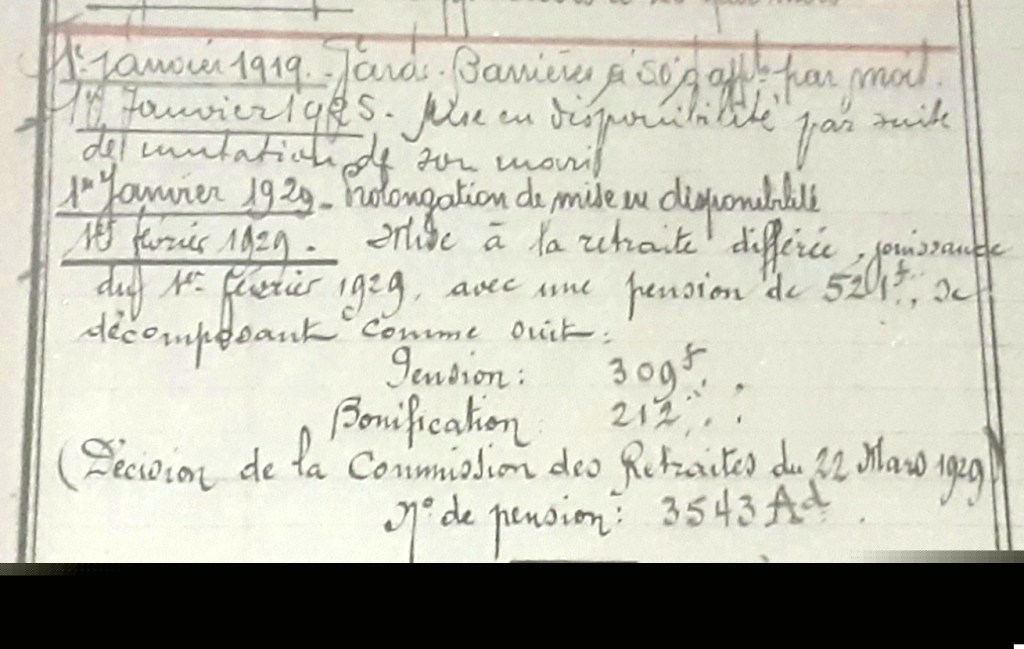 1er janvier 1919. - Garde-Barrières à 50f app.ts par mois.
1er Janvier 1925. - Mise en disponibilité par suite
de mutation de son mari
1er Janvier 1929 - Prolongation de mise en disponibilité
1er février 1929. - Mise à la retraite différée, jouissance
du 1er février 1929, avec une pension de 521f, se
décomposant comme suit:
Pension: 309f
Bonification 212
(Décision de la Commission des Retraites du 22 Mars 1929)
N° de pension: 3543 Ad.